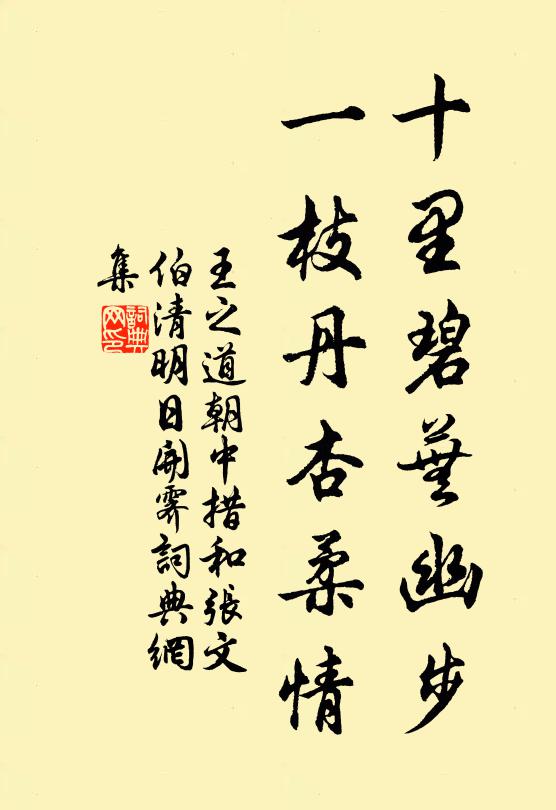 十里碧蕪幽步
一枝丹杏柔情
王之道朝中措和張文
伯清明日開霽詞典網
集
詞典网印